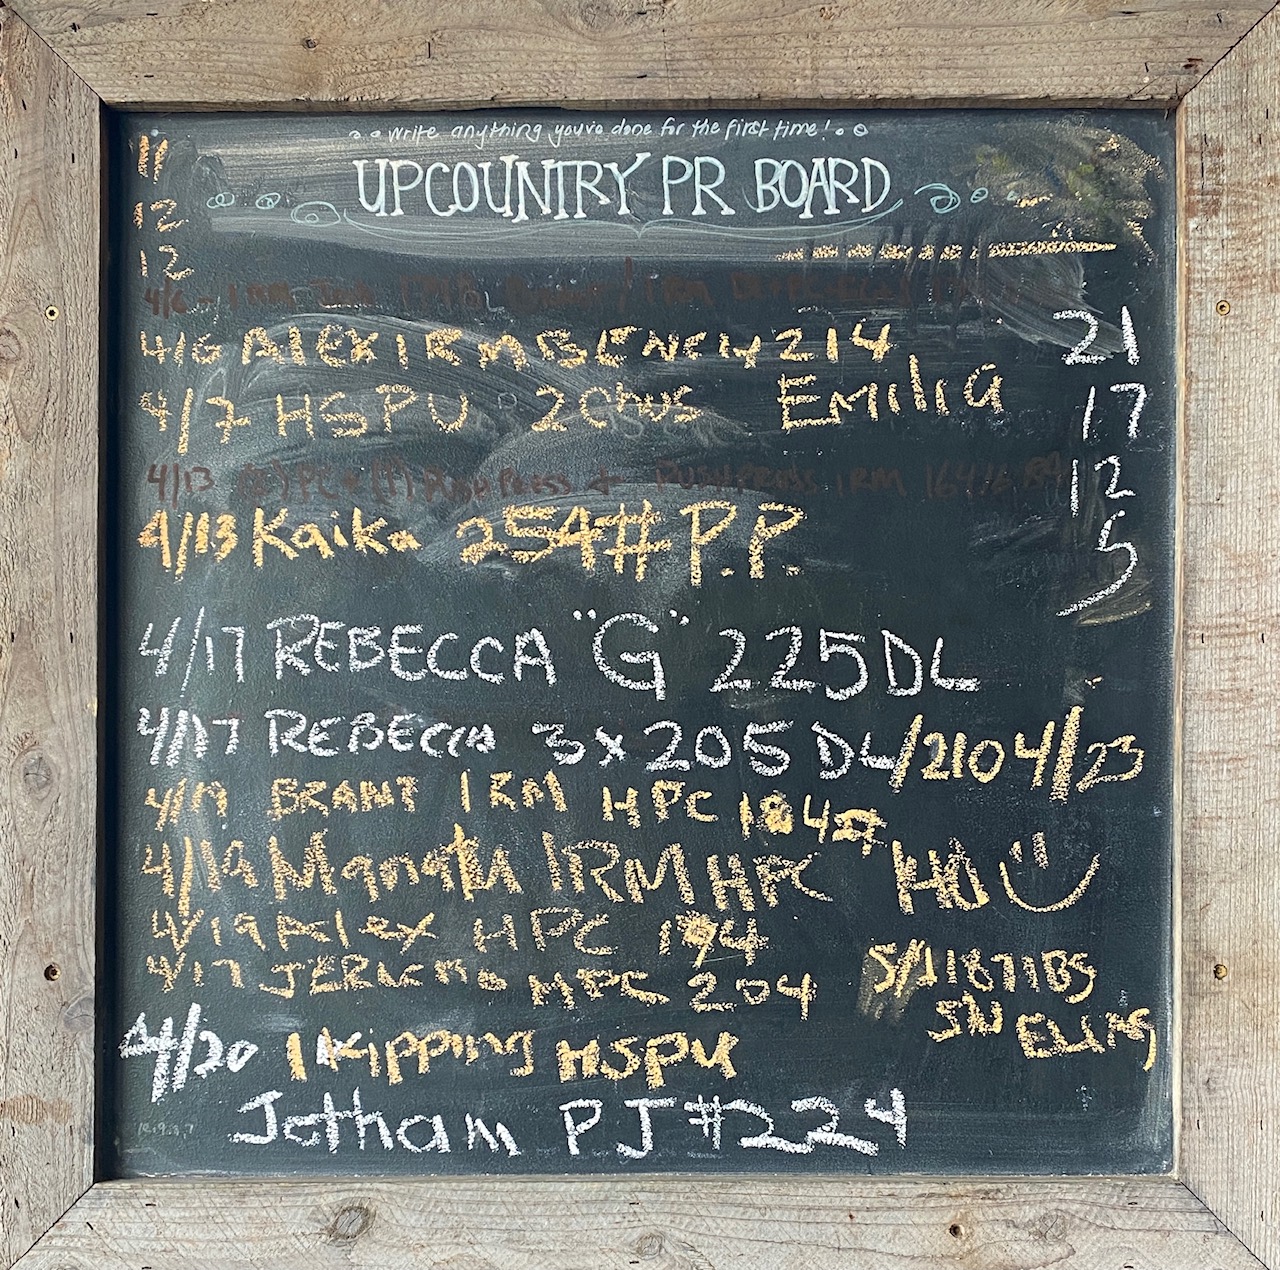 write anything you've done for the first time!
UPCOUNTRY PR BOARD
11
12
12
4/6 - 1RM
4/6 ALEX 1RM BENCH 214
21
4/7 HSPU 2 Emilia
17
4/13 PUSH PRESS 1RM
12
4/13 Kaika 254# P.P.
5
4/17 REBECCA "G" 225 DL
4/17 REBECCA 3x205 DL/210 4/23
4/19 BRANT 1RM HPC 184#
4/19 1RM HPC
4/19 Alex HPC 194
4/17 HPC 204
5/1 187 lBS
4/20 1 Kipping HSPU
Jotham PJ #224